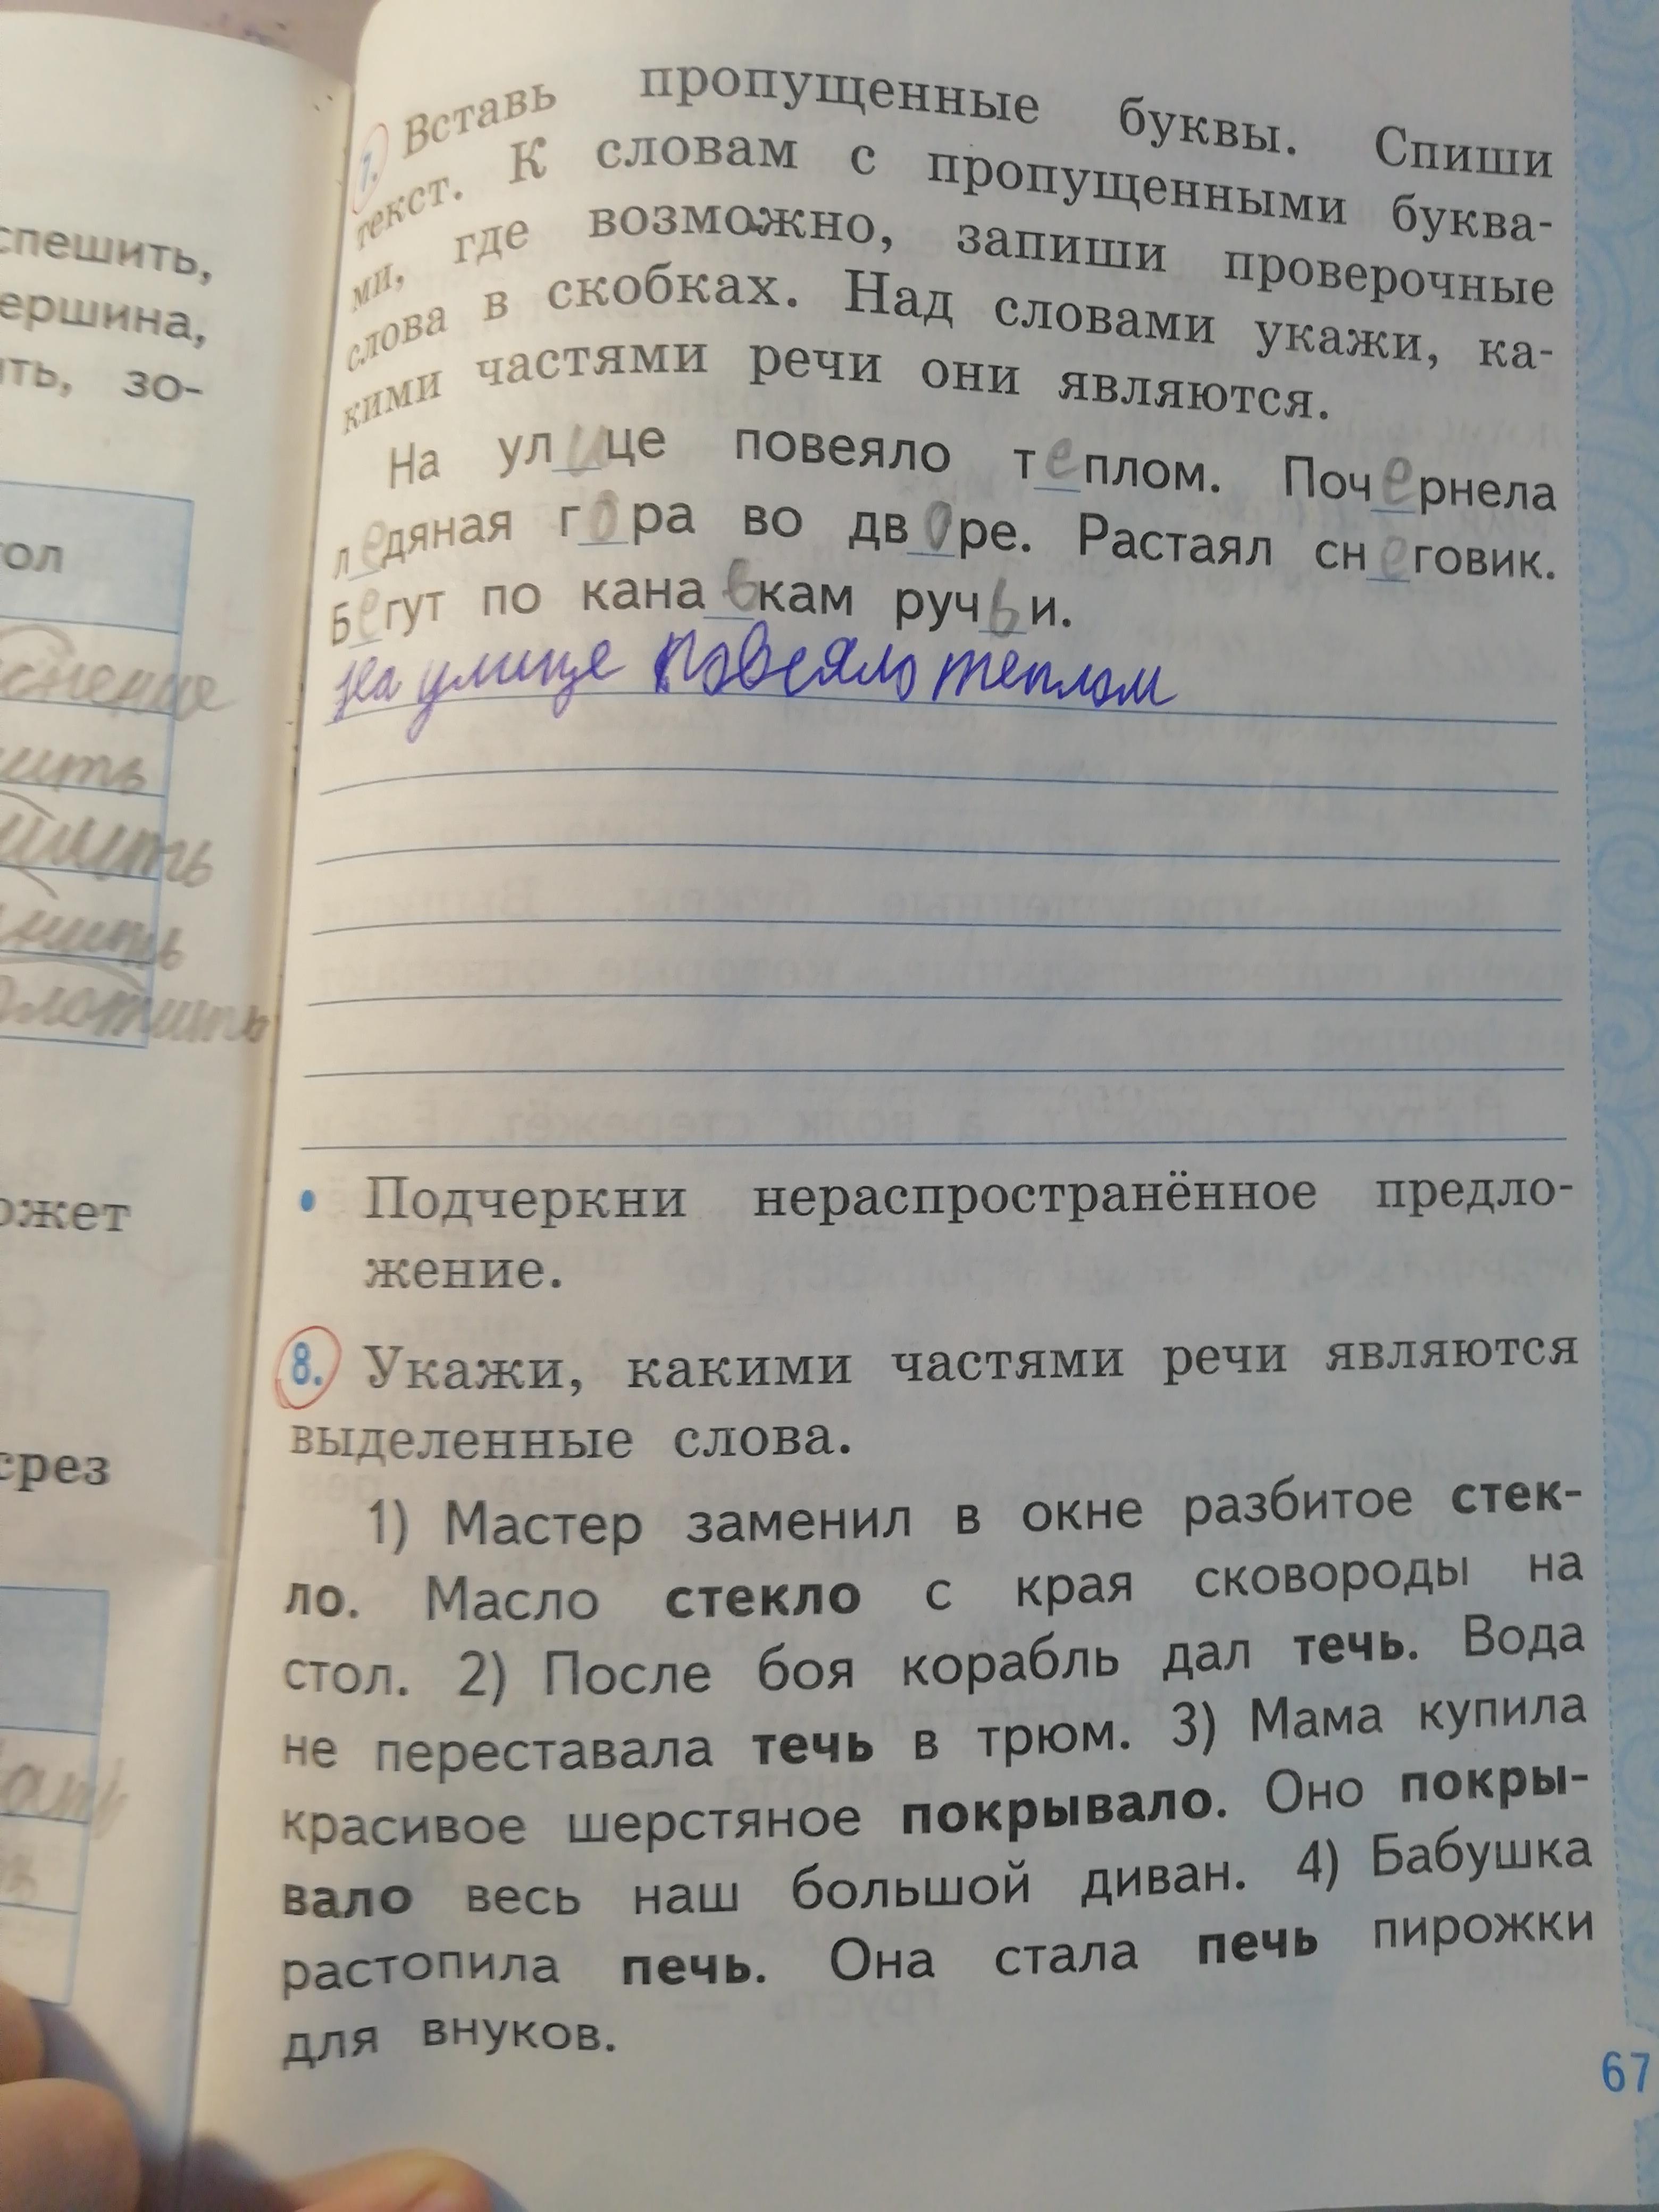 спешить,
ершина,
ить, зо-
гол
снение
шить
шить
олотить
ожет
срез
7. Вставь пропущенные буквы. Спиши
текст. К словам с пропущенными буква-
ми, где возможно, запиши проверочные
слова в скобках. Над словами укажи, ка-
кими частями речи они являются.
На улице повеяло теплом. Почернела
ледяная гора во дворе. Растаял снеговик.
Бегут по канавкам ручьи.
На улице повеяло теплом
• Подчеркни нераспространённое предло-
жение.
8. Укажи, какими частями речи являются
выделенные слова.
1) Мастер заменил в окне разбитое стек-
ло. Масло стекло с края сковороды на
стол. 2) После боя корабль дал течь. Вода
не переставала течь в трюм. 3) Мама купила
красивое шерстяное покрывало. Оно покры-
вало весь наш большой диван. 4) Бабушка
растопила печь. Она стала печь пирожки
для внуков.
срез
67